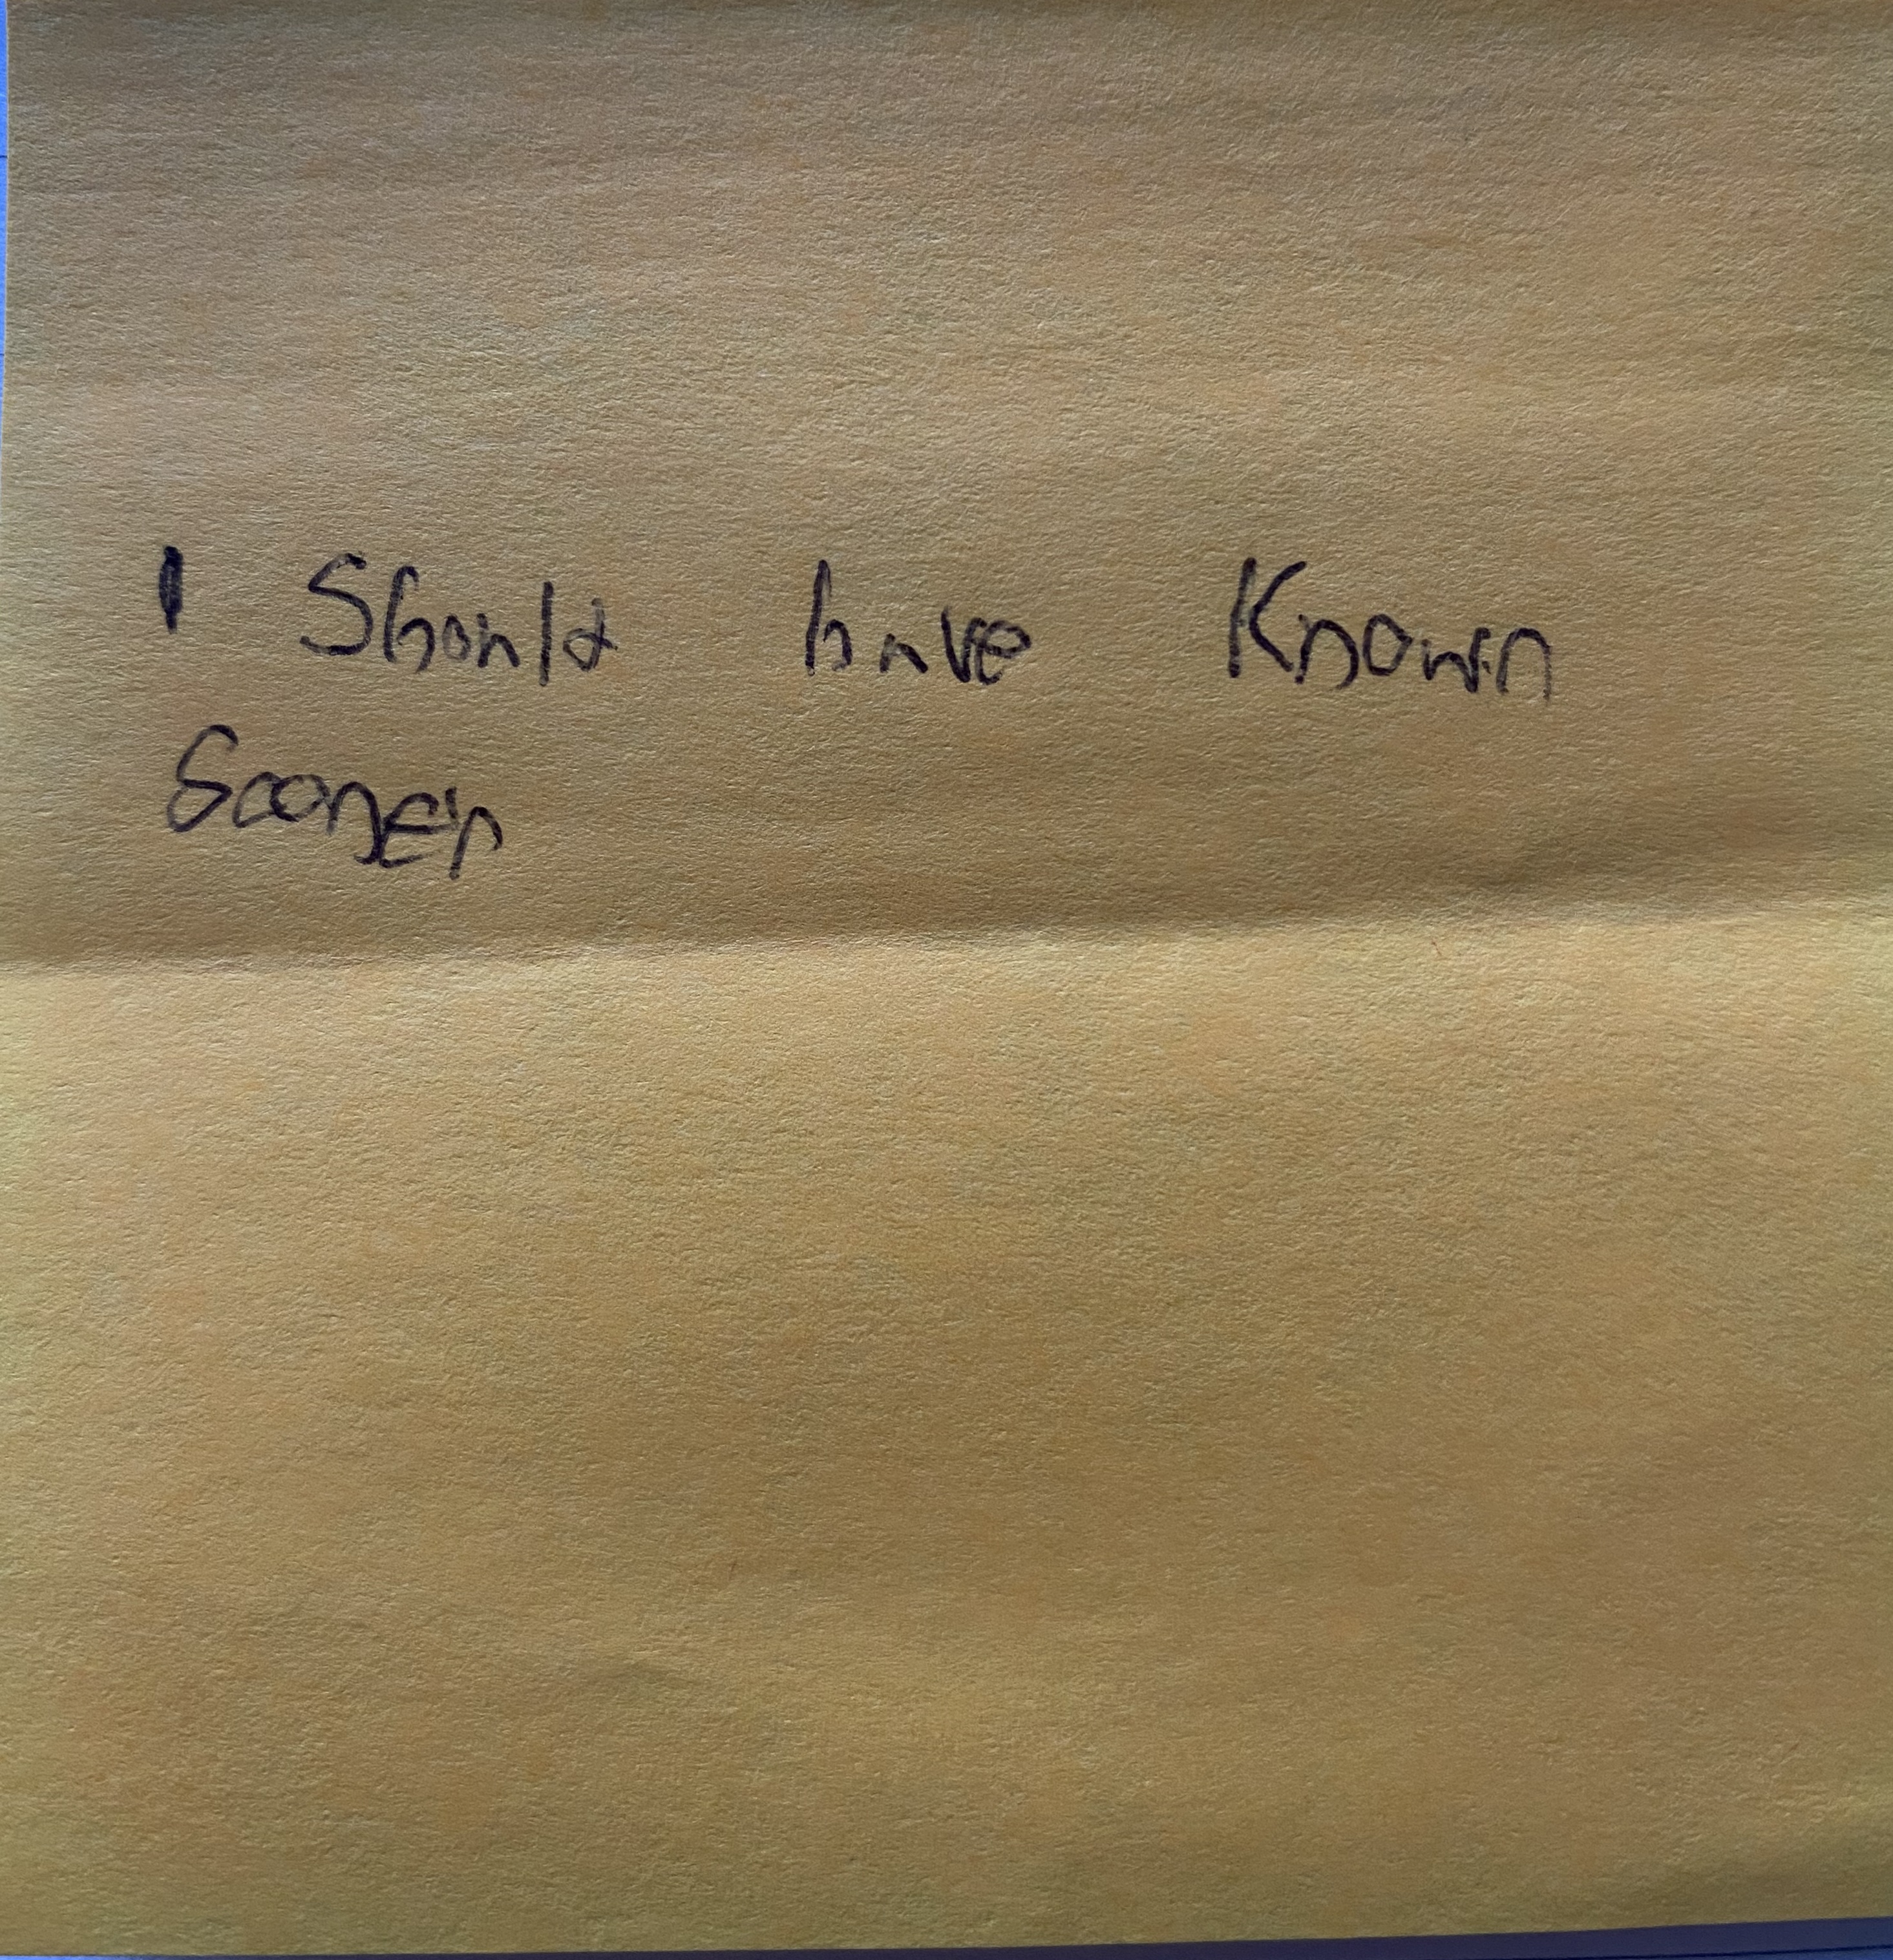 I Should have Known
Sooner